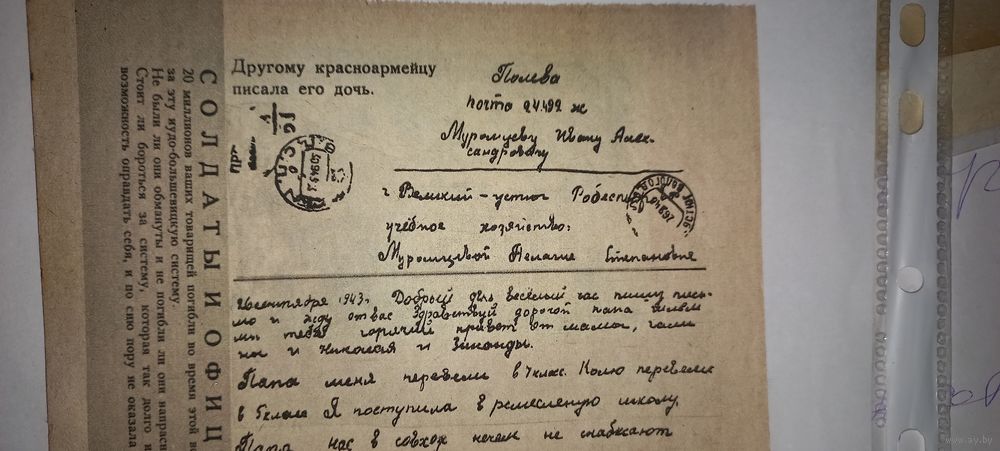 Другому красноармейцу
писала его дочь.
Полева
почта 24492 ж
Муромцеву Ивану Алек-
сандровичу
г Великий-устюг
учебное хозяйство:
Муромцевой Пелагие Степановне
сентября 1943г. Добрый день весёлый час пишу пись-
мо и жду от вас Здравствуй дорогой папа шлём
мы тебе горячий привет от мамы, гали
ны и Николая и Зинаиды.
Папа меня перевели в 7 класс. Колю перевели
в 5 класс Я поступила в ремесленую школу.
Папа нас в совхозе нечем не снабжают
СОЛДАТЫ И ОФИЦ
20 миллионов ваших товарищей погибли во время этой во
за эту иудо-большевицкую систему.
Не были ли они обмануты и не погибли ли они напрасн
Стоит ли бороться за систему, которая так долго и
возможность оправдать себя, и по сию пору не оказала
www.av.by